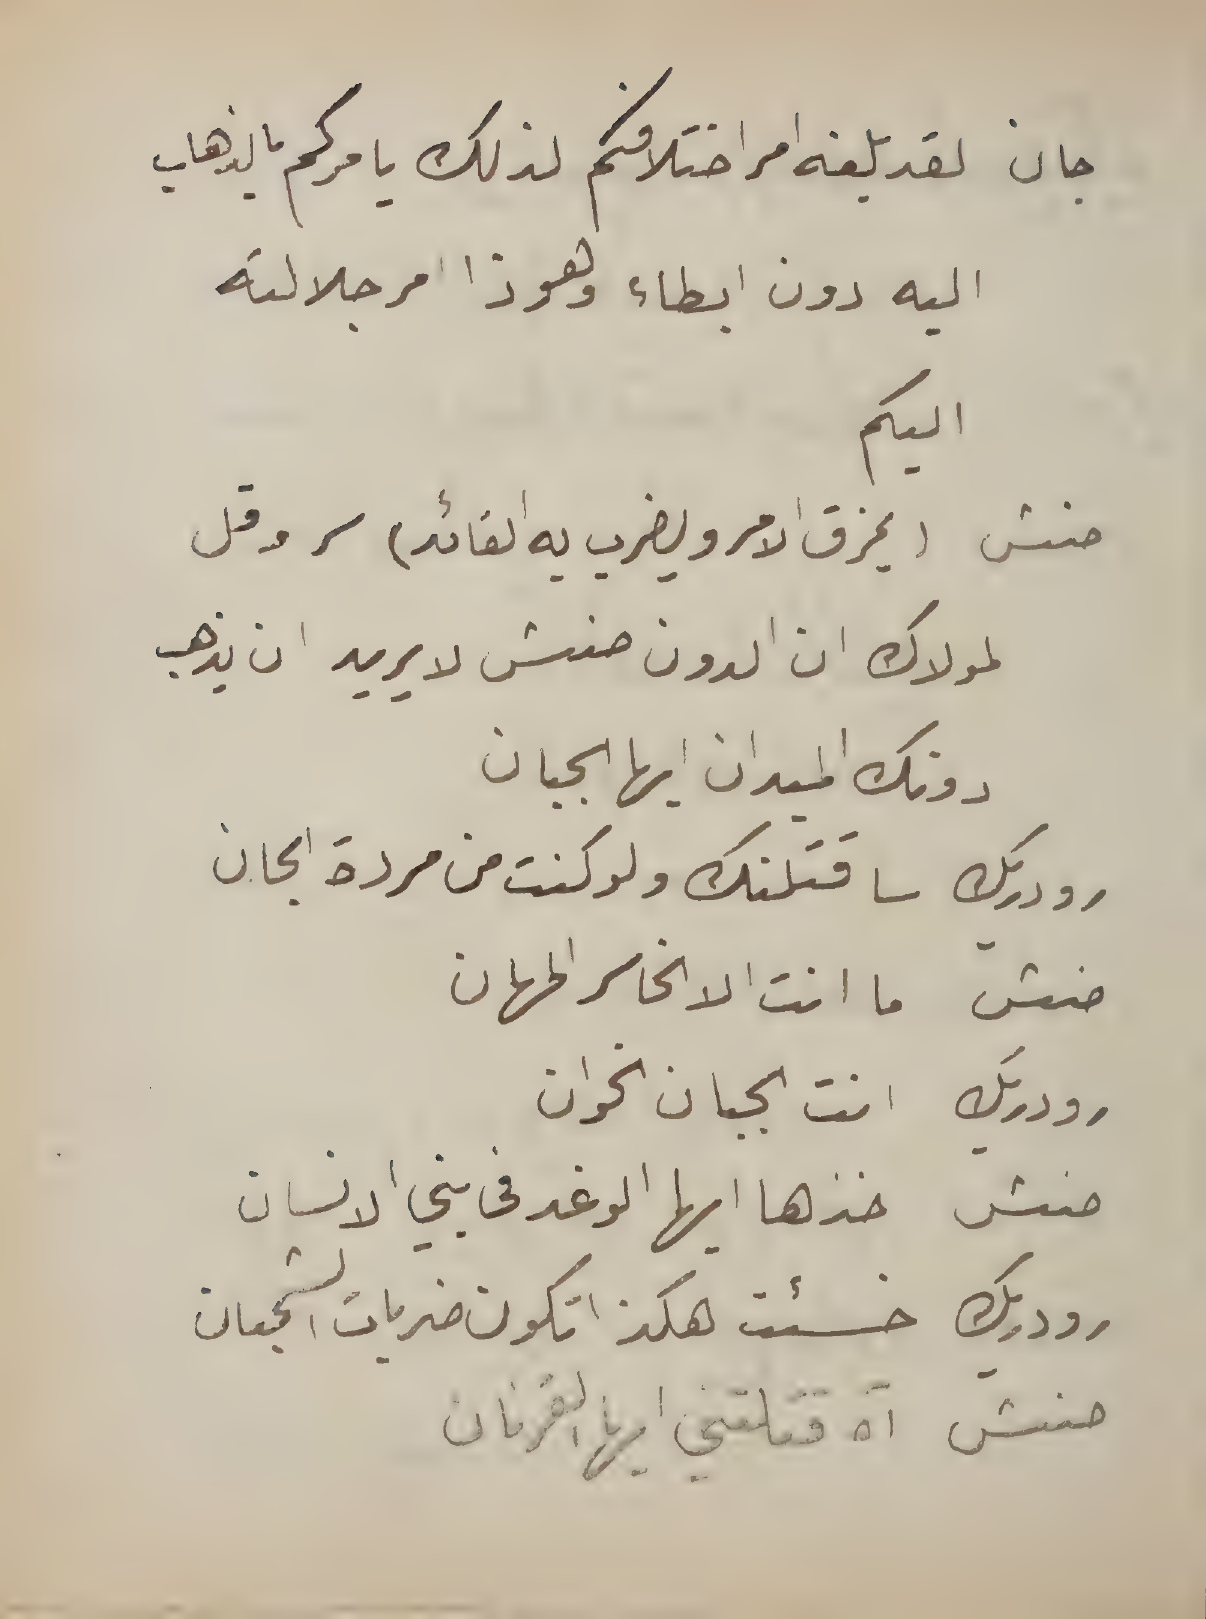 جان لقد بلغه امر اختلافكم لذلك يامركم بالذهاب
اليه دون ابطاء وهوذا امر جلالته
اليكم
صنش (يمزق الامر ويضرب به القائد) سر وقل
لمولاك ان الدون صنش لا يريد ان يذهب
دونك الميدان ايها الجبان
رودريك ساقتلنك ولو كنت من مردة الجان
صنش ما انت الا الخاسر المهان
رودريك انت الجبان الخوان
صنش خذها ايها الوغد في بني الانسان
رودريك خسئت هكذا تكون ضربات الشجعان
صنش آه قتلتني ايها القرنان